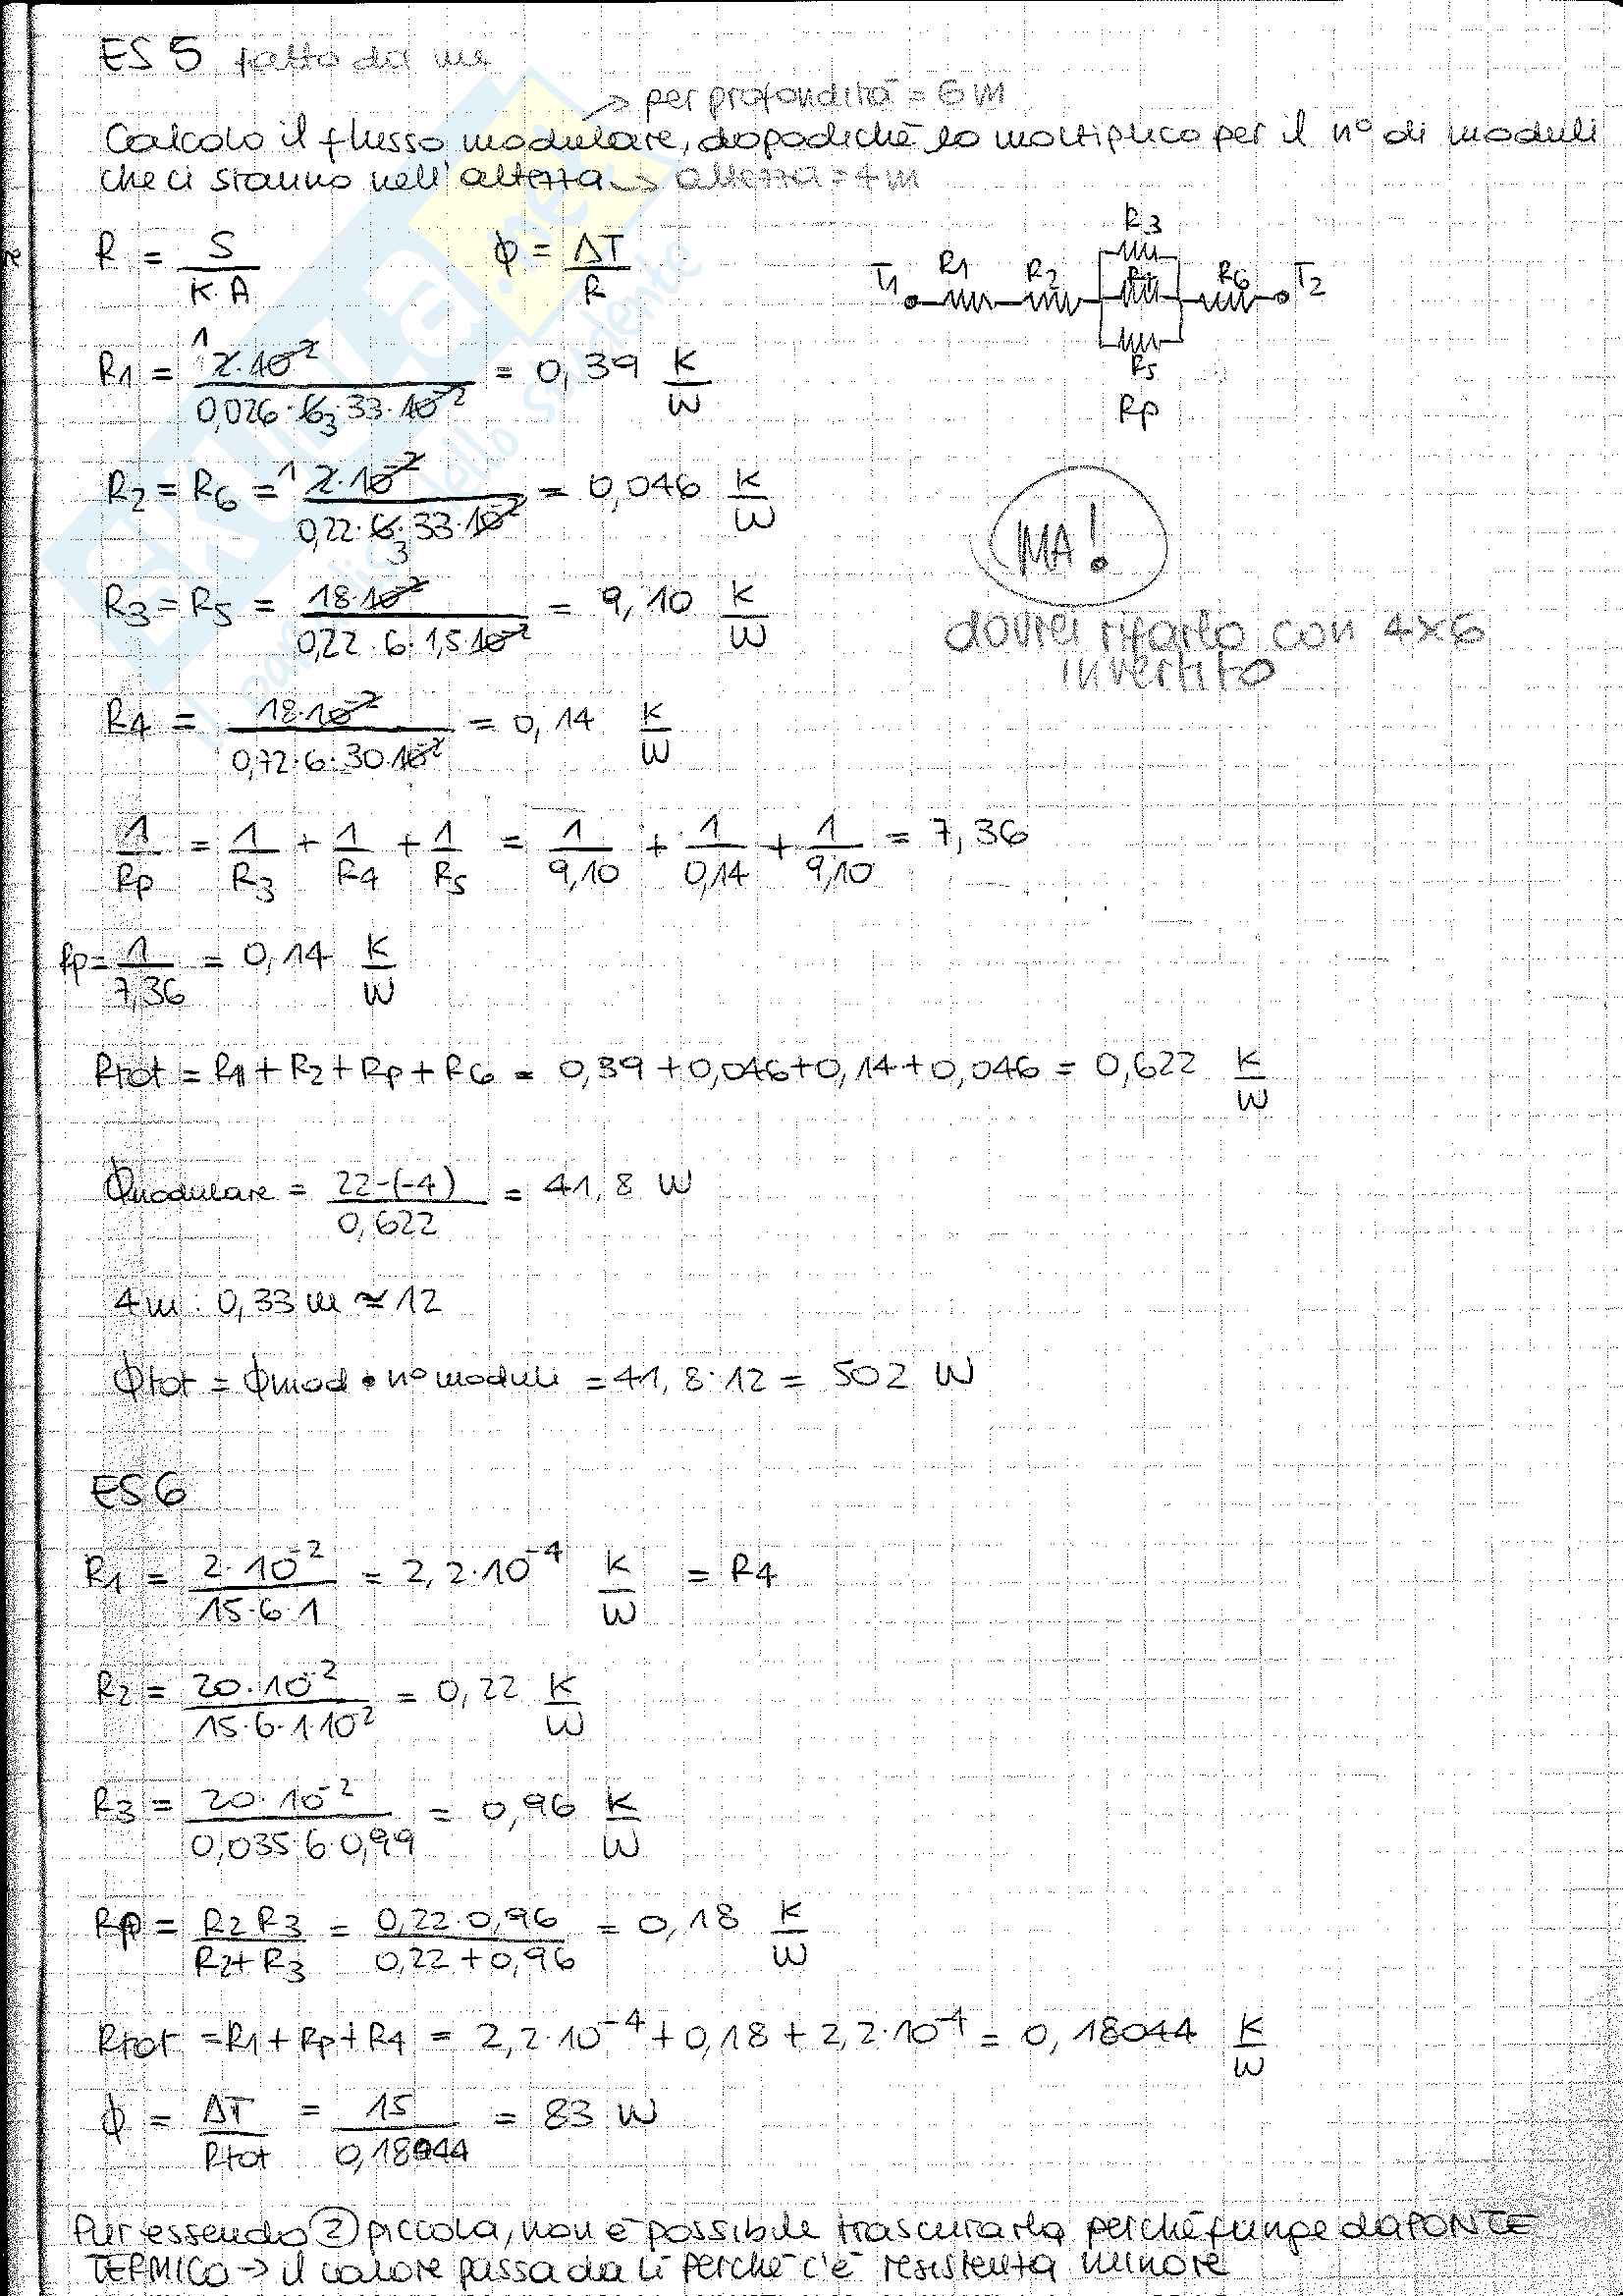 ES 5 fatto da me
→ per profondità = 6 m
Calcolo il flusso modulare, dopodiché lo moltiplico per il n° di moduli
che ci stanno nell'altezza → altezza = 4 m
R = S / (K·A)    φ = ΔT / R
T1 R1 R2 R3 R4 R5 R6 T2
Rp
R1 = 2·10⁻² / (0,026·6·33·10⁻²) = 0,39 K/W
R2 = R6 = 2·10⁻² / (0,22·6·33·10⁻²) = 0,046 K/W
MA!
R3 = R5 = 18·10⁻² / (0,22·6·1,5·10⁻²) = 9,10 K/W
dovrei rifarlo con 4×6
invertito
R4 = 18·10⁻² / (0,72·6·30·10⁻²) = 0,14 K/W
1/Rp = 1/R3 + 1/R4 + 1/R5 = 1/9,10 + 1/0,14 + 1/9,10 = 7,36
Rp = 1/7,36 = 0,14 K/W
Rtot = R1 + R2 + Rp + R6 = 0,39 + 0,046 + 0,14 + 0,046 = 0,622 K/W
φmodulare = 22-(-4) / 0,622 = 41,8 W
4m : 0,33 m ≃ 12
φtot = φmod • n° moduli = 41,8·12 = 502 W
ES 6
R1 = 2·10⁻² / (15·6·1) = 2,2·10⁻⁴ K/W = R4
R2 = 20·10⁻² / (15·6·1·10⁻²) = 0,22 K/W
R3 = 20·10⁻² / (0,035·6·0,99) = 0,96 K/W
Rp = R2 R3 / (R2+R3) = 0,22·0,96 / (0,22+0,96) = 0,18 K/W
Rtot = R1 + Rp + R4 = 2,2·10⁻⁴ + 0,18 + 2,2·10⁻⁴ = 0,18044 K/W
φ = ΔT / Rtot = 15 / 0,18044 = 83 W
Pur essendo ② piccola, non è possibile trascurarla perché funge da PONTE
TERMICO → il calore passa da lì perché c'è resistenza minore